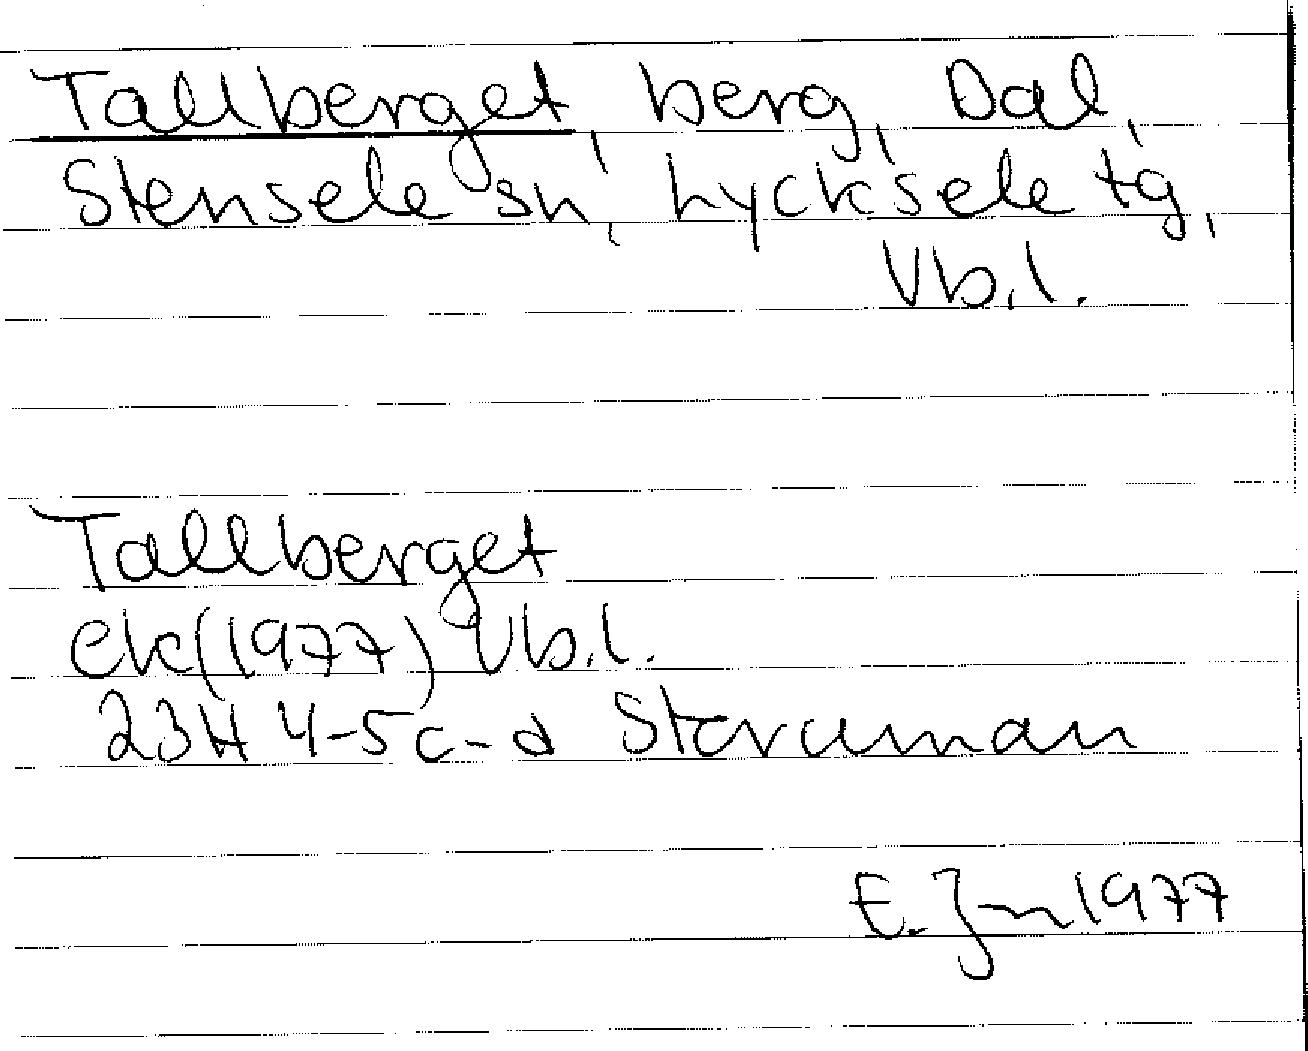 Tallberget, berg, Dal,
Stensele sn, Lycksele tg,
Vb.l.
Tallberget
ek(1977) Vb.l.
23H 4-5c-d Storuman
E. Jn 1977